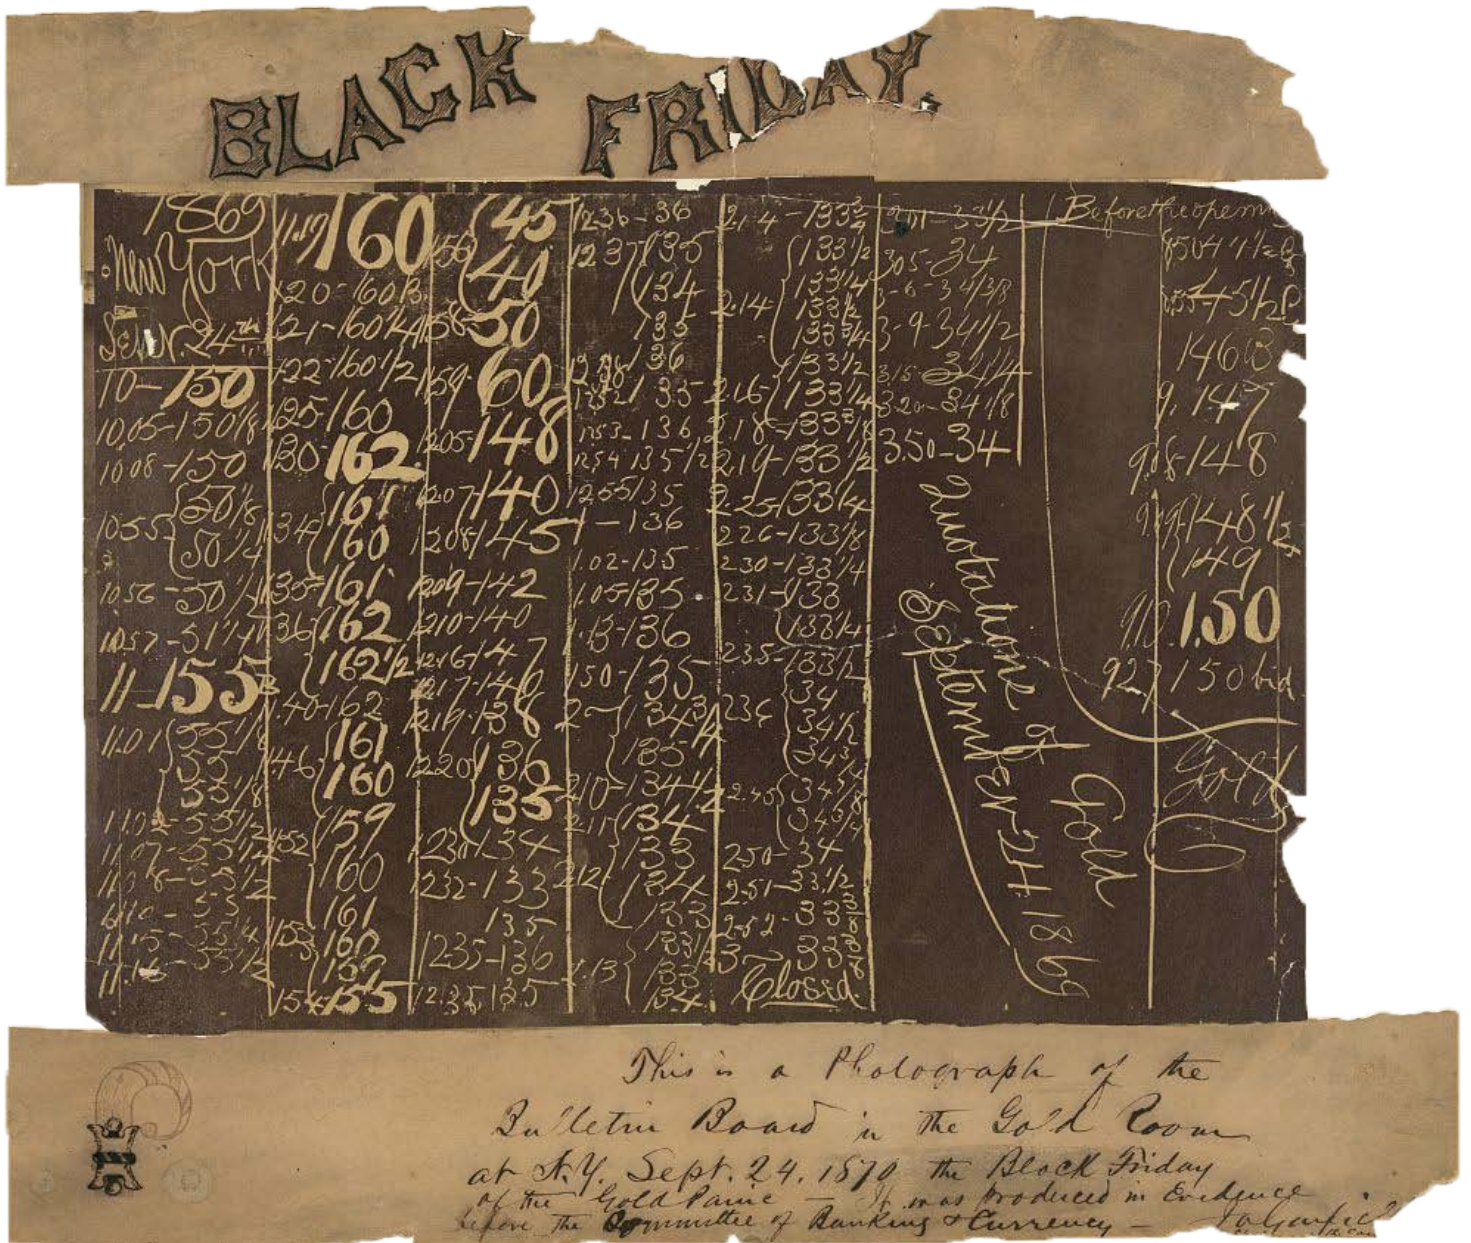 BLACK FRIDAY.
1869
New York
Sept. 24th
10-150
10.05-150 1/8
10 08-150
10 55 { 50 1/8
50 1/4
10 56-50 1/4
10 57-51 1/4
11-155
11.01 { 55 1/8
55
55 1/8
11.02-55 1/2
11.07-55 1/4
11.15-55 1/4
11.16
11.19 160
120-160 B
121-160 1/4
122-160 1/2
125-160
130-162
134 { 161
160
135-161
136 { 162
162 1/2
1.40-162
1.46 { 161
160
1152 { 159
160
161
1153 160
154-155
156 { 45
40
158-50
159-60
1205-148
1207-140
1208-145
1209-142
1210-140
1216-147
1217-140
1219-138
1220 { 136
135
1230-134
1232-133
135
1235-136
12.35, 135
12.36-36
12 37 { 135
134
135
136
135
1253-136
1254 135 1/2
1255-135
1-136
1.02-135
1.05-135
1.13-136
150-135
2- { 134 3/4
135
210-134 1/2
2.11 { 134
133
212 { 134
133
2.13 { 133 1/2
133
134
2.14-133 3/4
{ 133 1/2
133 1/4
2.14 { 133 1/2
133 3/4
133 1/2
2.16 { 133 1/4
2.18-133 1/8
2.19-133 1/2
2.25-133 1/4
226-133 1/8
230-133 1/4
231-133
133 1/4
235-133 1/2
236 { 34
34 1/2
34 3/4
2.45 { 34 7/8
34 3/4
250-34
2.51-33 1/2
2-52-33
3-33
Closed.
301-33 1/2
305-34
3-6-34 3/8
3-9-34 1/2
3.15-34 1/4
3.20-34 1/8
3.50-34
Quotations of Gold
September 24 1869
Before the openin
850 44 1/2
8.55-45 1/2
146 B
9, 147
9,08-148
9,09-148 1/2
149
9,10 1.50
927 150 bid
Gold
This is a Photograph of the
Bulletin Board in the Gold Room
at N.Y. Sept. 24. 1870 the Black Friday
of the Gold Panic — It was produced in Evidence
before the Committee of Banking & Currency — JAGarfield